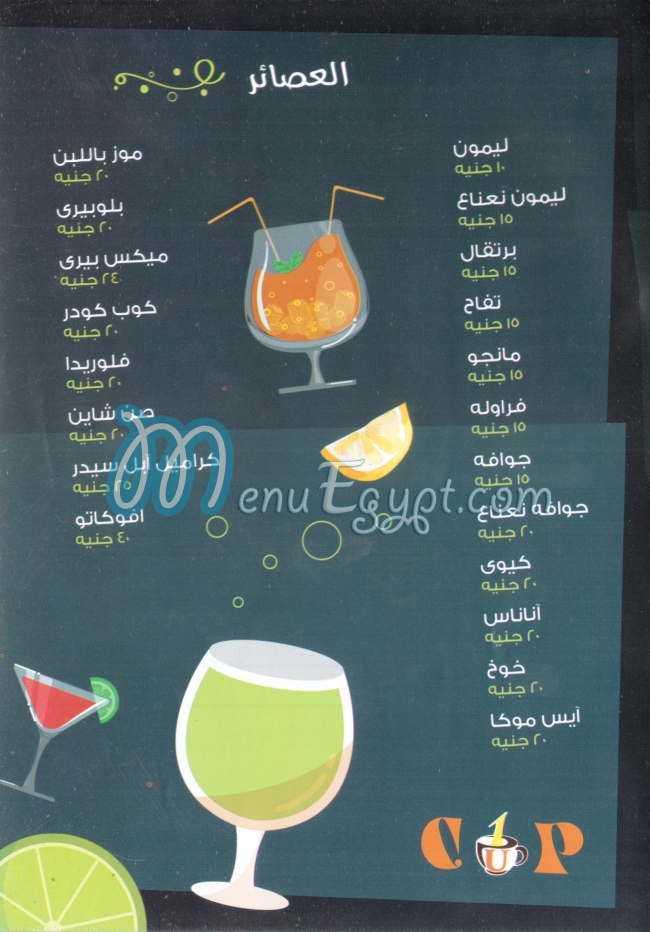 العصائر
ليمون
١٠ جنيه
ليمون نعناع
١٥ جنيه
برتقال
١٥ جنيه
تفاح
١٥ جنيه
مانجو
١٥ جنيه
فراوله
١٥ جنيه
جوافه
١٥ جنيه
جوافه نعناع
٢٠ جنيه
كيوى
٢٠ جنيه
آناناس
٢٠ جنيه
خوخ
٢٠ جنيه
آيس موكا
٢٠ جنيه
موز باللبن
٢٠ جنيه
بلوبيرى
٢٠ جنيه
ميكس بيرى
٢٤ جنيه
كوب كودر
٢٠ جنيه
فلوريدا
٢٠ جنيه
صن شاين
٢٠ جنيه
كراميل آبل سيدر
٢٥ جنيه
افوكاتو
٤٠ جنيه
MenuEgypt.com
1
CUP